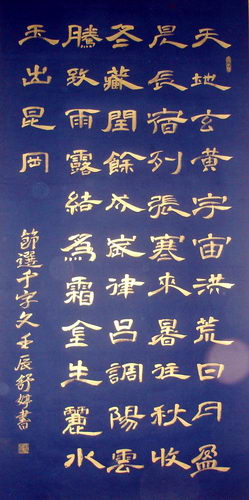 天地玄黄宇宙洪荒日月盈
昃辰宿列張寒来暑往秋收
冬藏閏餘成歲律吕調陽雲
騰致雨露結為霜金生麗水
玉出崑岡
節選千字文壬辰舒婷書